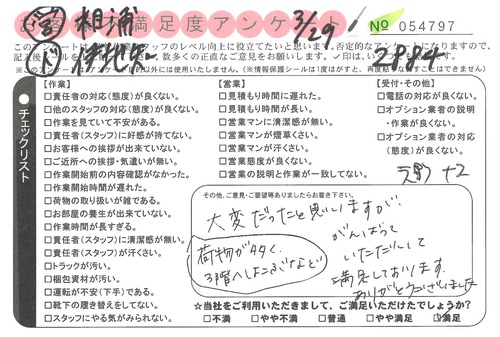 お客様満足度アンケート
3/29
№ 054797
営 相浦
ド
2984
このアンケートは
スタッフのレベル向上に役立てたいと思います。否定的なアンケートになりますので、
数多くの正直なご意見をお願いします。✓印は、
※このアンケートは
以外には使用いたしません。(※情報保護シールは1度はがすと、再度貼
ことはできません)
チェックリスト
【作業】
□責任者の対応(態度)が良くない。
□他のスタッフの対応(態度)が良くない。
□作業を見ていて不安がある。
□責任者(スタッフ)に好感が持てない。
□お客様への挨拶が出来ていない。
□ご近所への挨拶・気遣いが無い。
□作業開始前の内容確認がなかった。
□作業開始時間が遅れた。
□荷物の取り扱いが雑である。
□お部屋の養生が出来ていない。
□作業時間が長すぎる。
□責任者(スタッフ)に清潔感が無い。
□責任者(スタッフ)が汗くさい。
□トラックが汚い。
□梱包資材が汚い。
□運転が不安(下手)である。
□靴下の履き替えをしてない。
□スタッフにやる気がみられない。
【営業】
□見積もり時間に遅れた。
□見積もり時間が長い。
□営業マンに清潔感が無い。
□営業マンが煙草くさい。
□営業マンが汗くさい。
□営業態度が良くない。
□営業の説明と作業が一致してない。
【受付・その他】
□電話の対応が良くない。
□オプション業者の説明
・作業が良くない。
□オプション業者の対応
(態度)が良くない。
その他、ご意見・ご要望等ありましたらお書き下さい。
大変だったと思いますが
荷物が多く、
3階へはこぶなど
がんばって
いただいて
満足しております。
ありがとうございました
☆当社をご利用いただきまして、ご満足いただけたでしょうか?
□不満 □やや不満 □普通 □やや満足 ☑満足